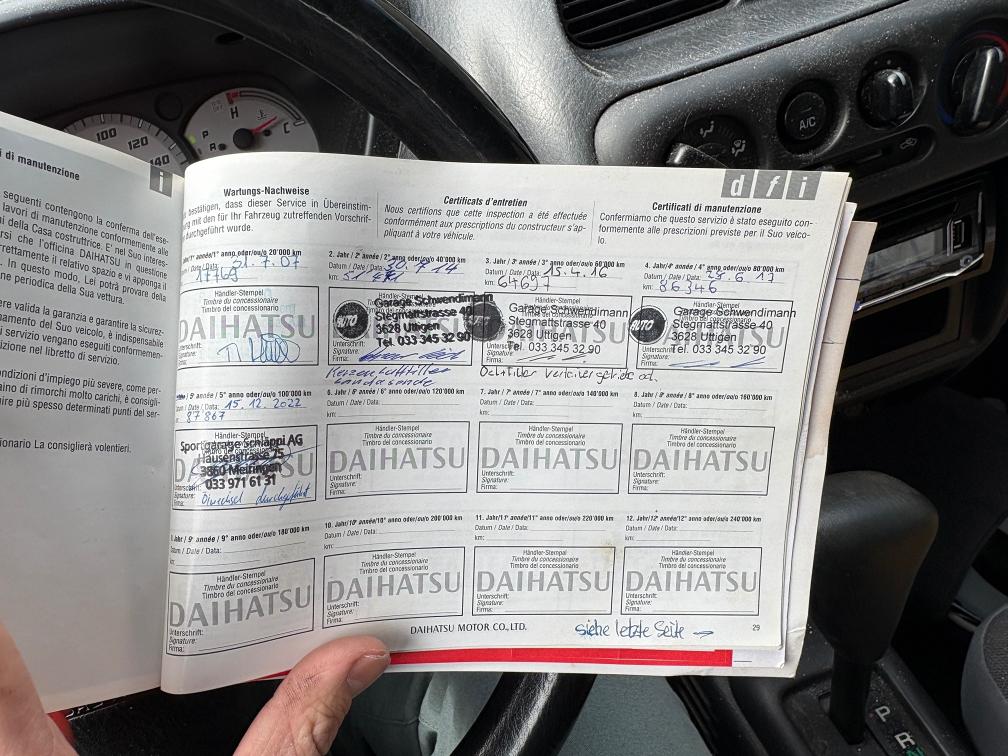 i di manutenzione
i
seguenti contengono la conferma dell'ese-
lavori di manutenzione conformemente alle
della Casa costruttrice. E' nel Suo interes-
rsi che l'officina DAIHATSU in questione
rrettamente il relativo spazio e vi apponga il
In questo modo, Lei potrà prova della
ne periodica della Sua vettura.
ere valida la garanzia e garantire la sicurez-
namento del Suo veicolo, è indispensabile
di servizio vengano eseguiti conformemen-
izione nel libretto di servizio.
ondizioni d'impiego più severe, come per
aino di rimorchi molto carichi, è consigli-
uire più spesso determinati punti del ser-
ionario La consiglierà volentieri.
100
120
140
H
C
P
R
A/C
d f i
Wartungs-Nachweise
bestätigen, dass dieser Service in Übereinstim-
ng mit den für Ihr Fahrzeug zutreffenden Vorschrif-
durchgeführt wurde.
Certificats d'entretien
Nous certifions que cette inspection a été effectuée
conformément aux prescriptions du constructeur s'ap-
pliquant à votre véhicule.
Certificati di manutenzione
Confermiamo che questo servizio è stato eseguito con-
formemente alle prescrizioni previste per il Suo veico-
lo.
année/1° anno oder/ou/o 20'000 km
Date / Data: 7.07
17763
Händler-Stempel
Timbre du concessionnaire
Timbro del concessionario
DAIHATSU
Unterschrift:
Signature:
Firma:
2. Jahr/ 2e année / 2° anno oder/ou/o 40'000 km
Datum / Date / Data: 30.7.14
km:
Händler-Stempel
Garage Schwendimann
Stegmattstrasse 40
3628 Uttigen
Tel. 033 345 32 90
AUTO
DAIHATSU
Unterschrift:
Signature:
Firma:
3. Jahr/ 3e année / 3° anno oder/ou/o 60'000 km
Datum / Date / Data: 15.4.16
km: 64697
Händler-Stempel
Garage Schwendimann
Stegmattstrasse 40
3628 Uttigen
Tel. 033 345 32 90
4. Jahr/ 4e année / 4° anno oder/ou/o 80'000 km
Datum / Date / Data: 6.17
km: 86346
Händler-Stempel
Garage Schwendimann
Stegmattstrasse 40
3628 Uttigen
Tel. 033 345 32 90
AUTO
5e année / 5° anno oder/ou/o 100'000 km
Datum / Date / Data: 15.12.2022
87867
Händler-Stempel
Sportgarage Schläppi AG
Hausenstrasse 75
3860 Meiringen
033 971 61 31
Unterschrift:
Signature:
Firma: Ölwechsel durchgeführt
6. Jahr / 6e année / 6° anno oder/ou/o 120'000 km
Datum / Date / Data:
km:
Händler-Stempel
Timbre du concessionnaire
Timbro del concessionario
DAIHATSU
Unterschrift:
Signature:
Firma:
7. Jahr / 7e année / 7° anno oder/ou/o 140'000 km
Datum / Date / Data:
km:
Händler-Stempel
Timbre du concessionnaire
Timbro del concessionario
DAIHATSU
Unterschrift:
Signature:
Firma:
8. Jahr / 8e année / 8° anno oder/ou/o 160'000 km
Datum / Date / Data:
km:
Händler-Stempel
Timbre du concessionnaire
Timbro del concessionario
DAIHATSU
Unterschrift:
Signature:
Firma:
Jahr / 9e année / 9° anno oder/ou/o 180'000 km
Datum / Date / Data:
km:
Händler-Stempel
Timbre du concessionnaire
Timbro del concessionario
DAIHATSU
Unterschrift:
Signature:
Firma:
10. Jahr/10e année/10° anno oder/ou/o 200'000 km
Datum / Date / Data:
km:
Händler-Stempel
Timbre du concessionnaire
Timbro del concessionario
DAIHATSU
Unterschrift:
Signature:
Firma:
11. Jahr/11e année/11° anno oder/ou/o 220'000 km
Datum / Date / Data:
km:
Händler-Stempel
Timbre du concessionnaire
Timbro del concessionario
DAIHATSU
Unterschrift:
Signature:
Firma:
12. Jahr/12e année/12° anno oder/ou/o 240'000 km
Datum / Date / Data:
km:
Händler-Stempel
Timbre du concessionnaire
Timbro del concessionario
DAIHATSU
Unterschrift:
Signature:
Firma:
DAIHATSU MOTOR CO., LTD.
siehe letzte Seite →
29